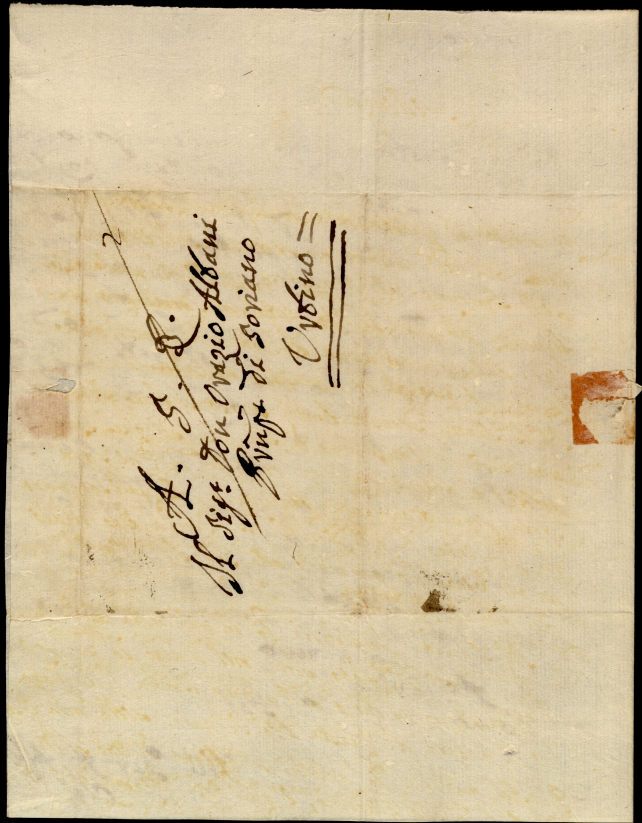 A. S. E.
Il Sigr. Don Orazio Albani
Prñpe di Soriano
Urbino